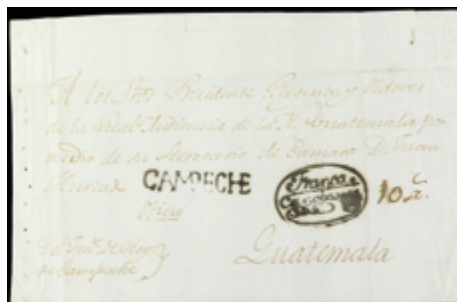 A los Sres Presidente Regente, y Oidores
de la Real Audiencia de la N. Guatemala por
medio de su Secretario de Camara D. Juan
Hurtado
CAMPECHE
Franca
10
Oficio
de Campeche
Guatemala